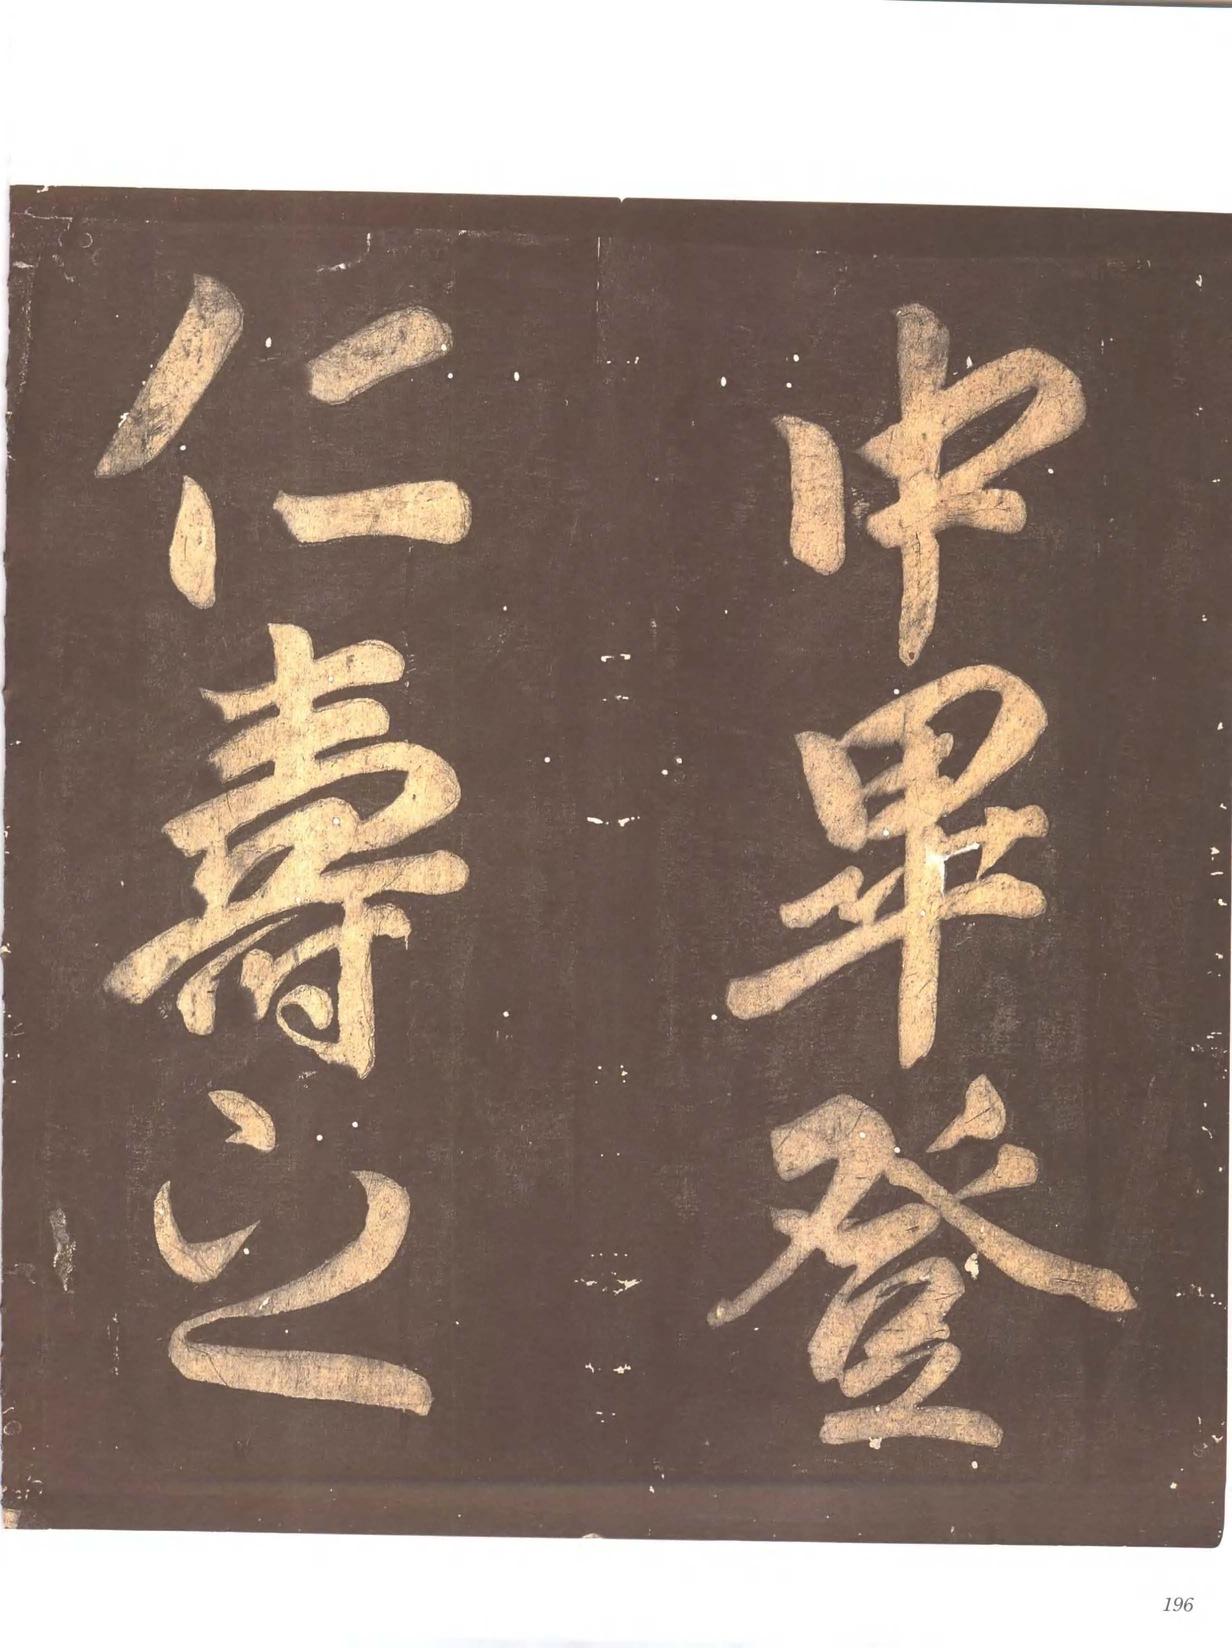 中畢登
仁壽之
196